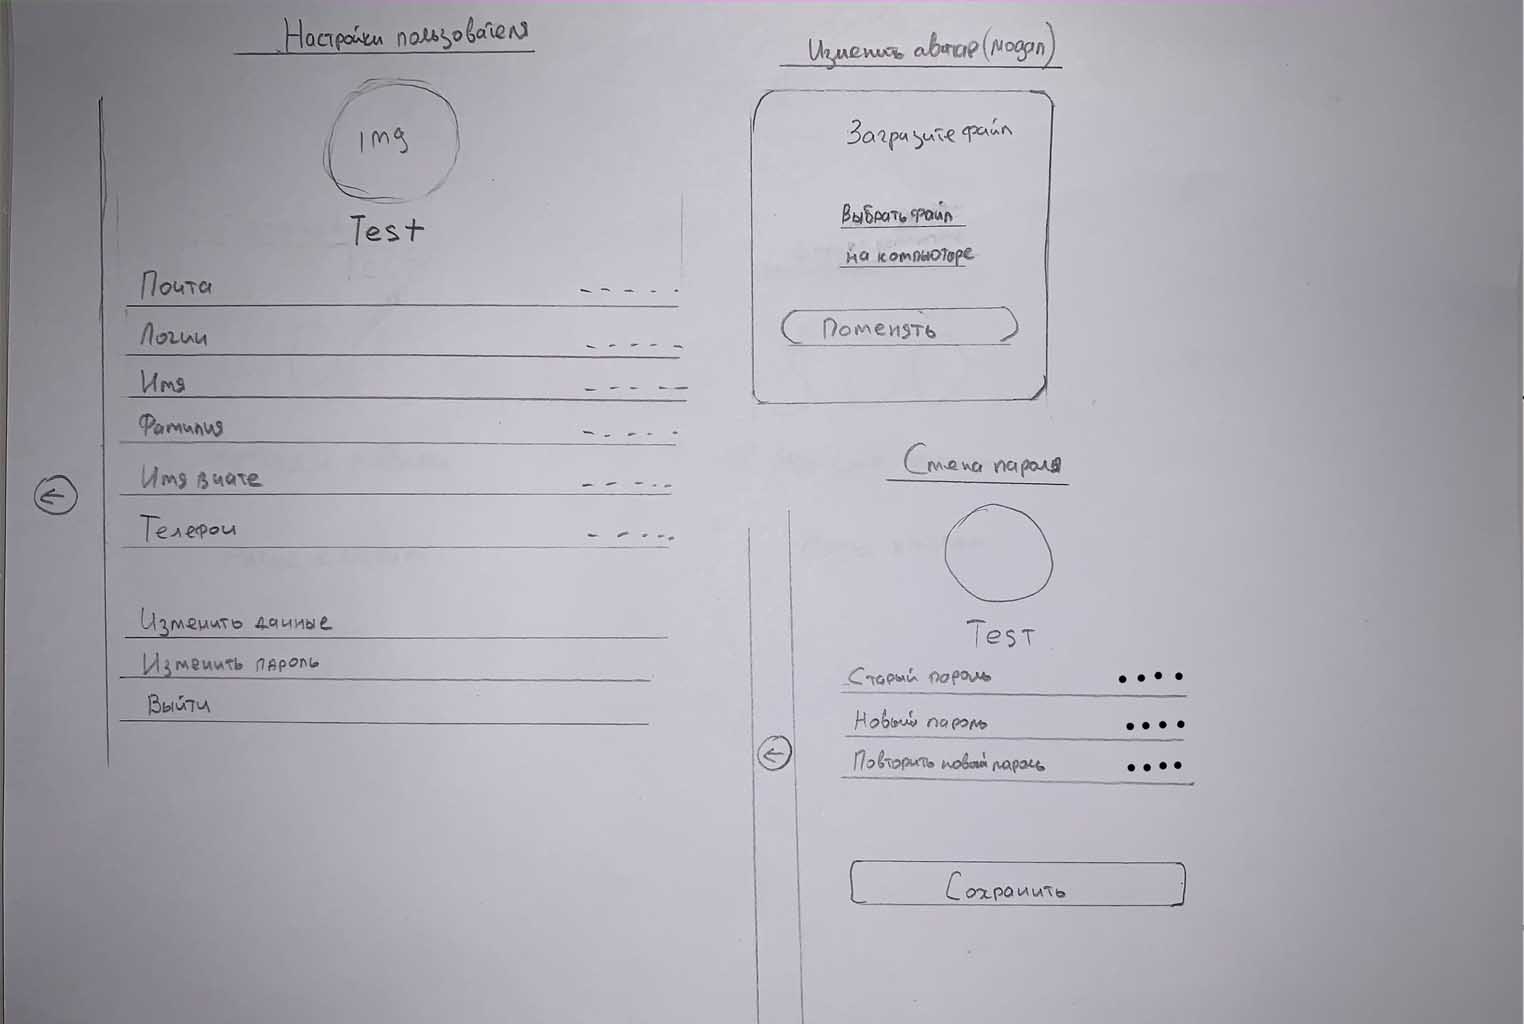 Настройки пользователя
img
Test
Почта
Логин
Имя
Фамилия
Имя в чате
Телефон
Изменить данные
Изменить пароль
Выйти
Изменить аватар (модал)
Загрузите файл
Выбрать файл
на компьютере
Поменять
Смена пароля
Test
Старый пароль
Новый пароль
Повторить новый пароль
Сохранить